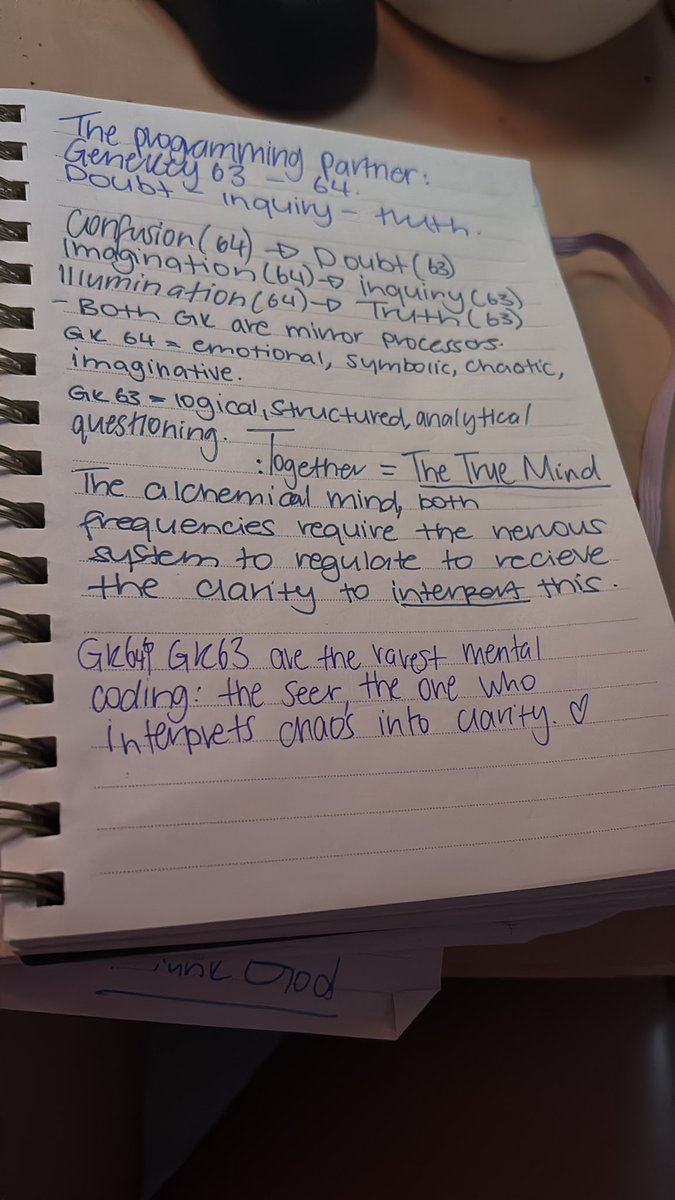 The progamming partner:
Genekey 63 - 64.
Doubt - inquiry - truth.
Confusion (64) → Doubt (63)
Imagination (64) → inquiry (63)
Illumination (64) → Truth (63)
- Both GK are mirror processors.
GK 64 = emotional, symbolic, chaotic,
imaginative.
GK 63 = logical, structured, analytical
questioning.
: Together = The True Mind
The alchemical mind, both
frequencies require the nervous
system to regulate to recieve
the clarity to interpert this.
GK64 GK63 are the rarest mental
coding: the seer, the one who
interprets chaos into clarity. ♡
God